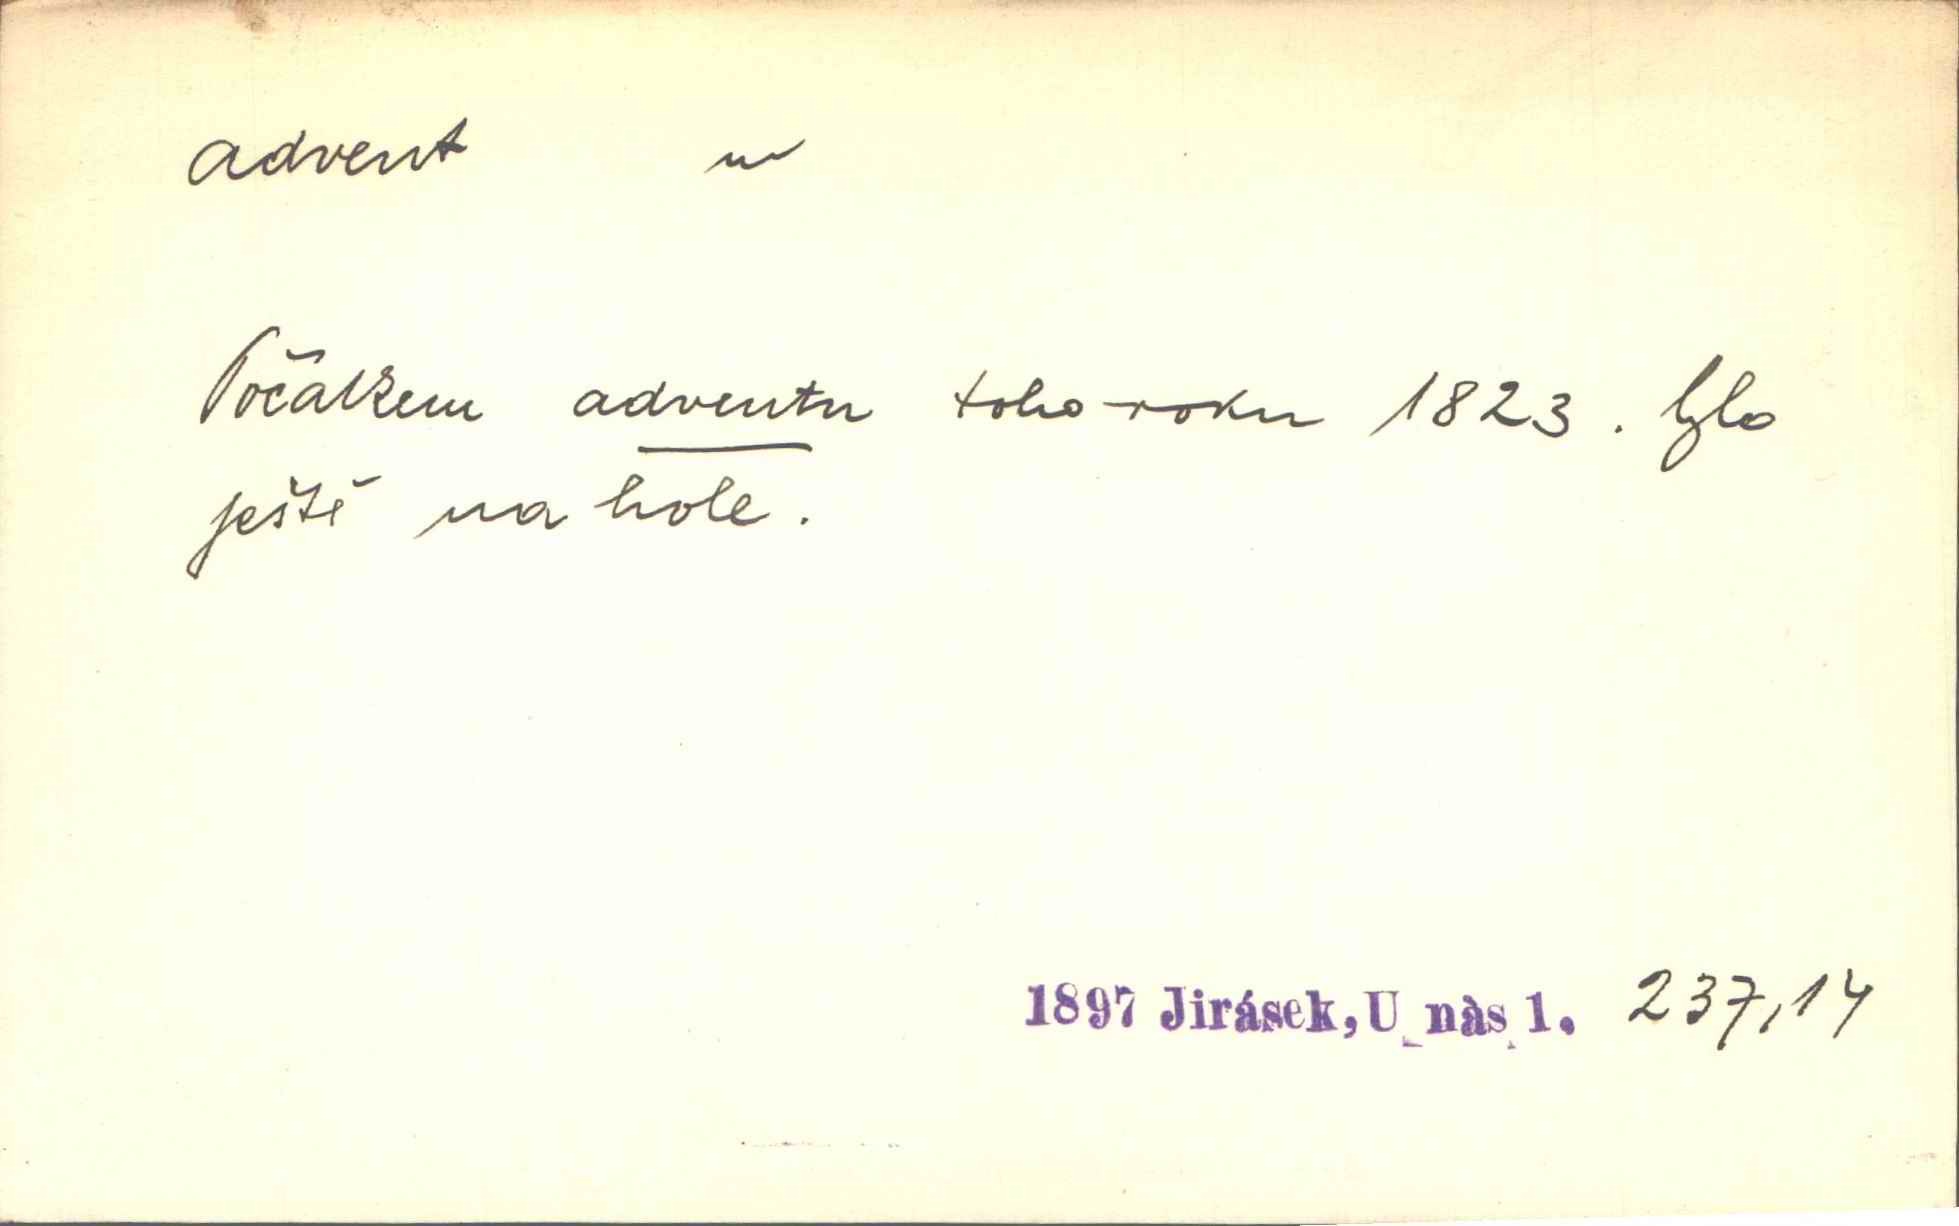 advent m
Počátkem adventu toho roku 1823. bylo
ještě na hole.
1897 Jirásek, U nàs 1. 237,14